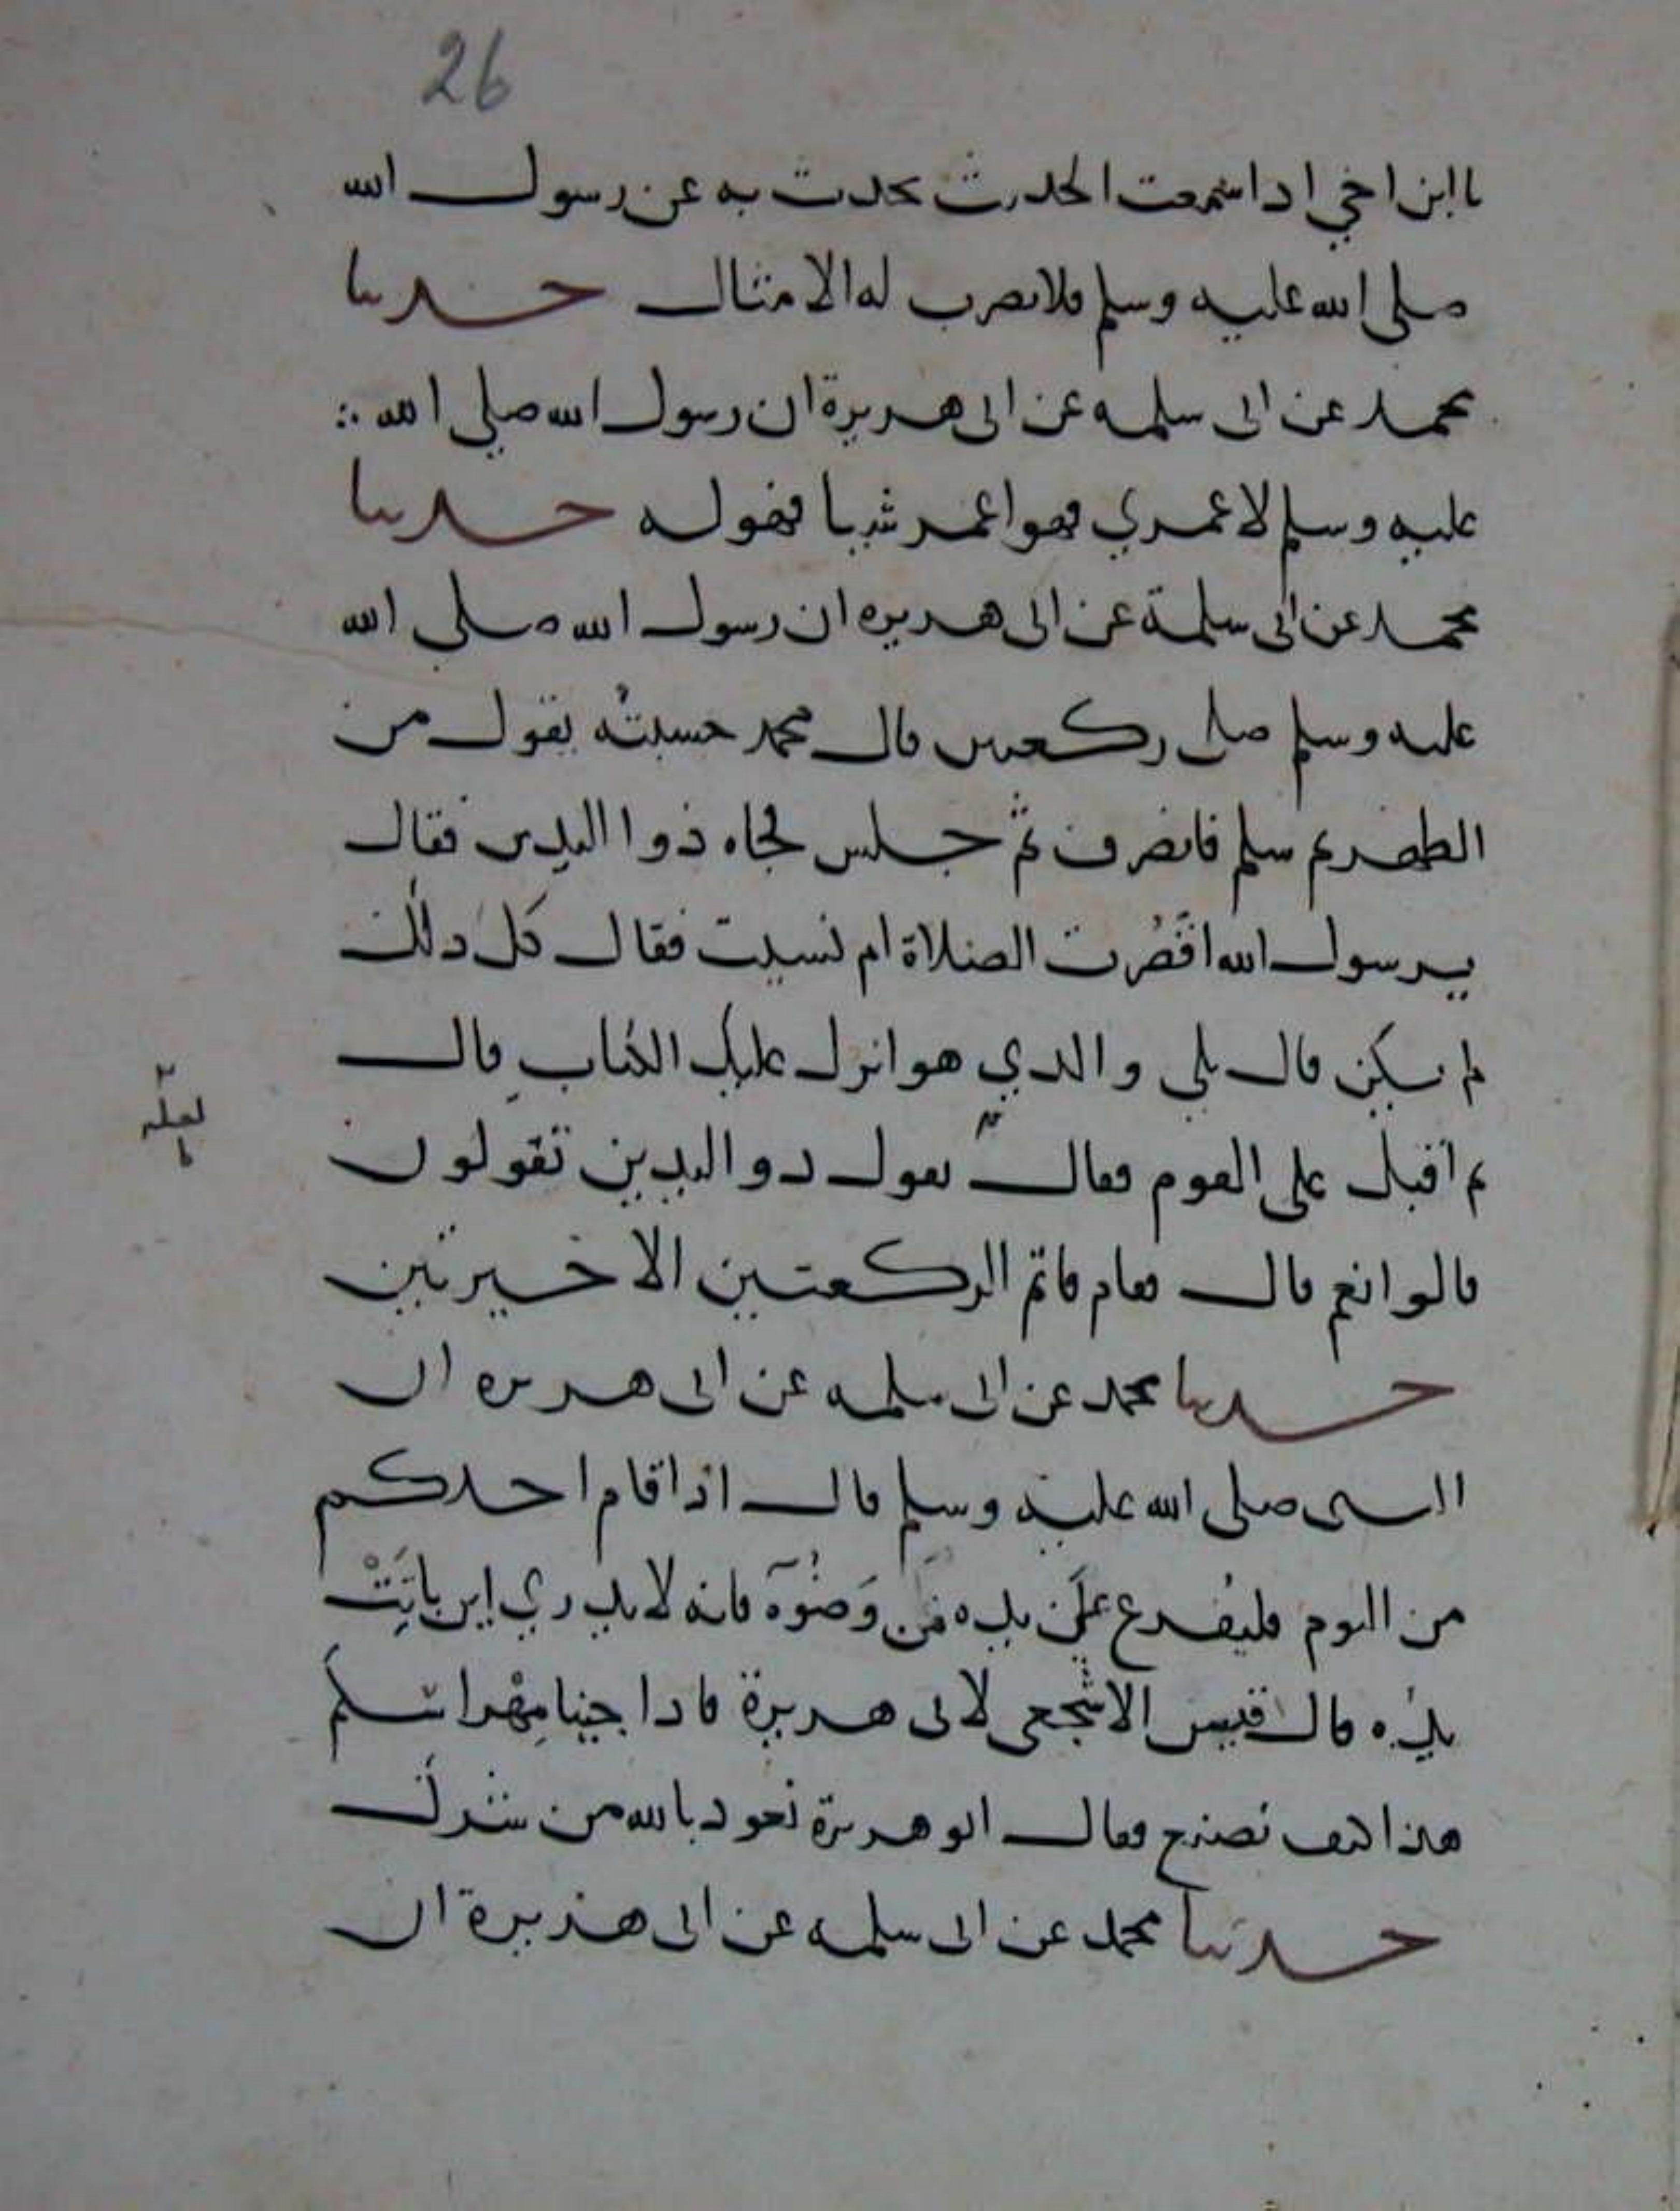 26
يا ابن اخي اذا سمعت الحديث يحدث به عن رسول الله
صلى الله عليه وسلم فلا تضرب له الامثال حدثنا
محمد عن ابى سلمه عن ابى هريرة ان رسول الله صلى الله
عليه وسلم لا عمري فمن اعمر شيا فهو له حدثنا
محمد عن ابى سلمة عن ابى هريره ان رسول الله صلى الله
عليه وسلم صلى ركعتين قال محمد حسبته يقول من
الظهر ثم سلم فانصرف ثم جلس فجاه ذوا اليدين فقال
يرسول الله اقَصُرت الصلاة ام نسيت فقال كل ذلك
لم يكن قال بلى والدي هو انزل عليك الكتاب قال
ثم اقبل على القوم فقال يقول دو اليدين تقولون
لعله ما
قالوا نعم قال فقام فاتم الركعتين الاخيرتين
حدثنا محمد عن ابى سلمه عن ابى هريره ان
النبى صلى الله عليه وسلم قال اذا قام احدكم
من النوم فليفرغ على يده من وَضُوءه فانه لا يدري اين باتَتْ
يدُه قال قيس الاشجعى لابى هريرة فاذا جينا مِهْراسكم
هذا كيف نصنع فقال ابو هريرة نعود بالله من شرك
حدثنا محمد عن ابى سلمه عن ابى هريرة ان